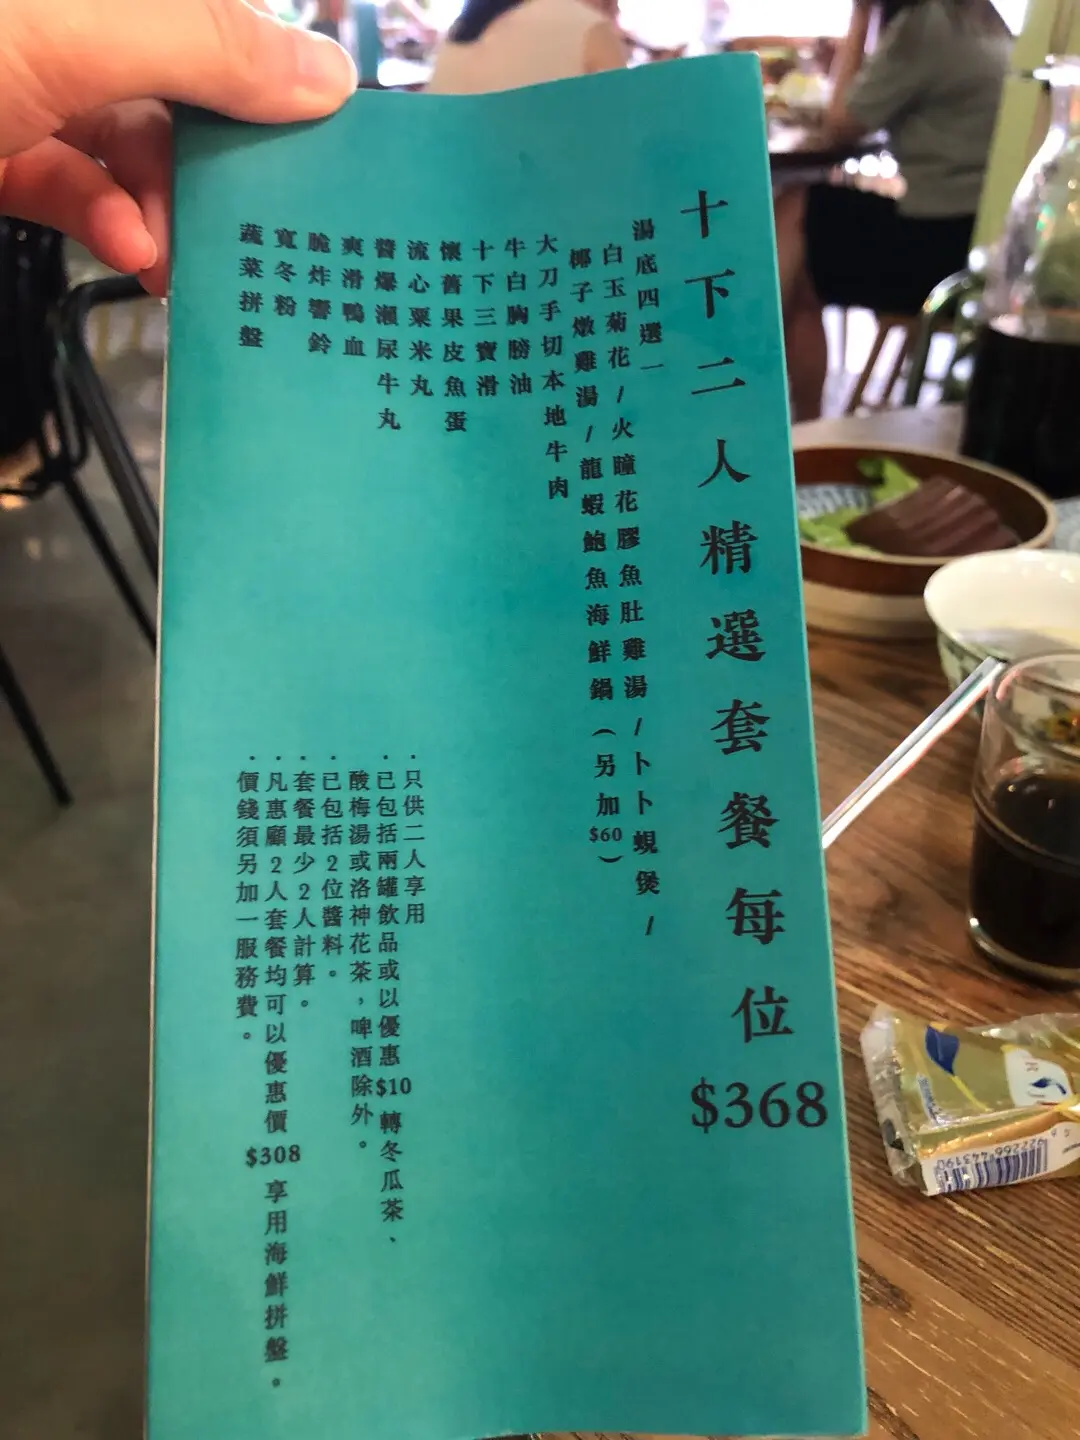 十下二人精選套餐每位$368
湯底四選一
白玉菊花/火瞳花膠魚肚雞湯/卜卜蜆煲/
椰子燉雞湯/龍蝦鮑魚海鮮鍋(另加$60)
大刀手切本地牛肉
牛白胸膀油
十下三寶滑
懷舊果皮魚蛋
流心粟米丸
醬爆瀨尿牛丸
爽滑鴨血
脆炸響鈴
寬冬粉
蔬菜拼盤
·只供二人享用
·已包括兩罐飲品或以優惠$10轉冬瓜茶、
酸梅湯或洛神花茶，啤酒除外。
·已包括2位醬料。
·套餐最少2人計算。
·凡惠顧2人套餐均可以優惠價$308享用海鮮拼盤。
·價錢須另加一服務費。